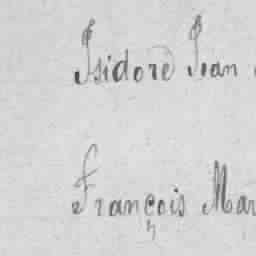 Isidore Jean
François Mar